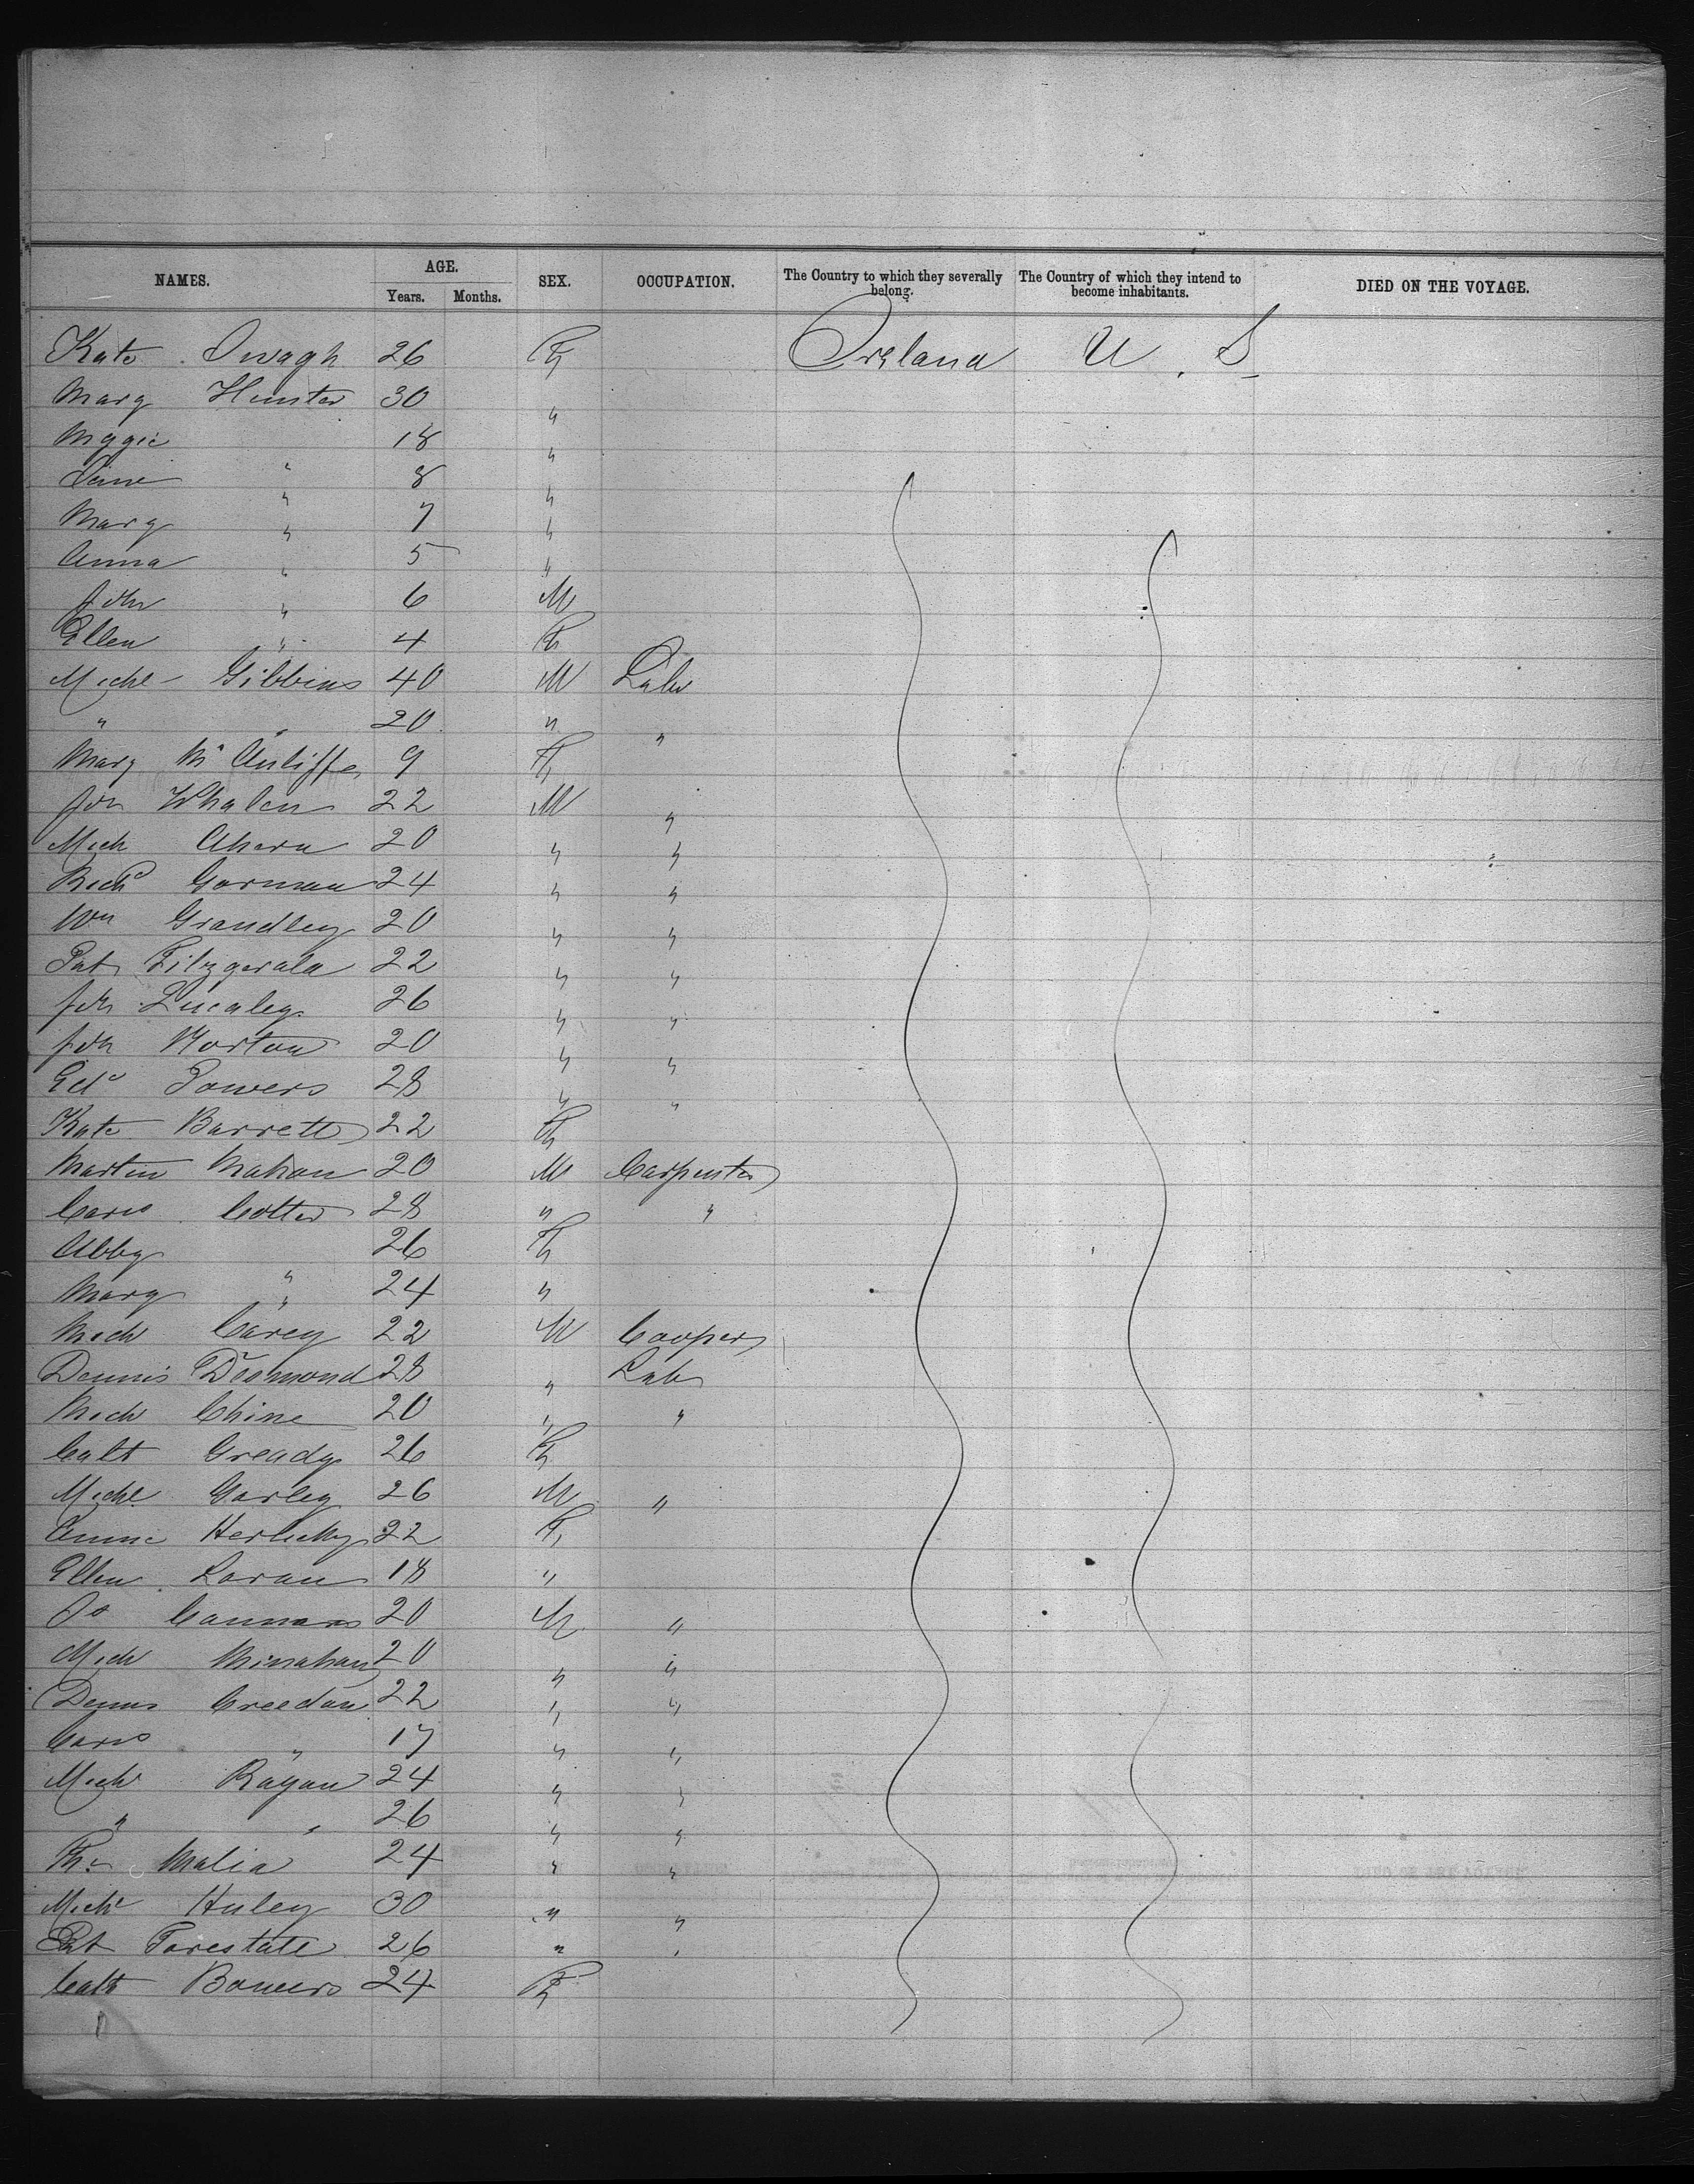 NAMES. AGE. SEX. OCCUPATION. The Country to which they severally belong. The Country of which they intend to become inhabitants. DIED ON THE VOYAGE.
Years. Months.
Kate 26 F Ireland U. S
Mary Hunter 30 "
Maggie 18 "
Jane " 8 "
Mary " 7 "
Anna " 5 "
Joh " 6 M
Ellen " 4 F
Michl Gibbins 40 M Labr
" " 20 " "
Mary Mc Auliffe 9 F
Joh Whalen 22 M "
Mich Ahern 20 " "
Richd Gorman 24 " "
Wm Grandley 20 " "
Pat Fitzgerald 22 " "
Joh 26 " "
Joh Horton 20 " "
Edd Powers 28 " "
Kate Barrett 22 F
Martin Mahon 20 M Carpenter
Corns Cotter 28 " "
Abby " 26 F
Mary " 24 "
Mich Carey 22 M Cooper
Dennis Desmond 28 " Lab
Mich Chine 20 " "
Cath Gready 26 F
Michl Garley 26 M "
Annie Herlihy 22 F
Ellen Loran 18 "
Jo 20 M "
Mich Minahan 20 " "
Dennis Creedon 22 " "
Corns " 17 " "
Michl Rayan 24 " "
" " 26 " "
Ths Malia 24 " "
Michl Huley 30 " "
Pat Forestale 26 " "
Cath Bowers 24 F